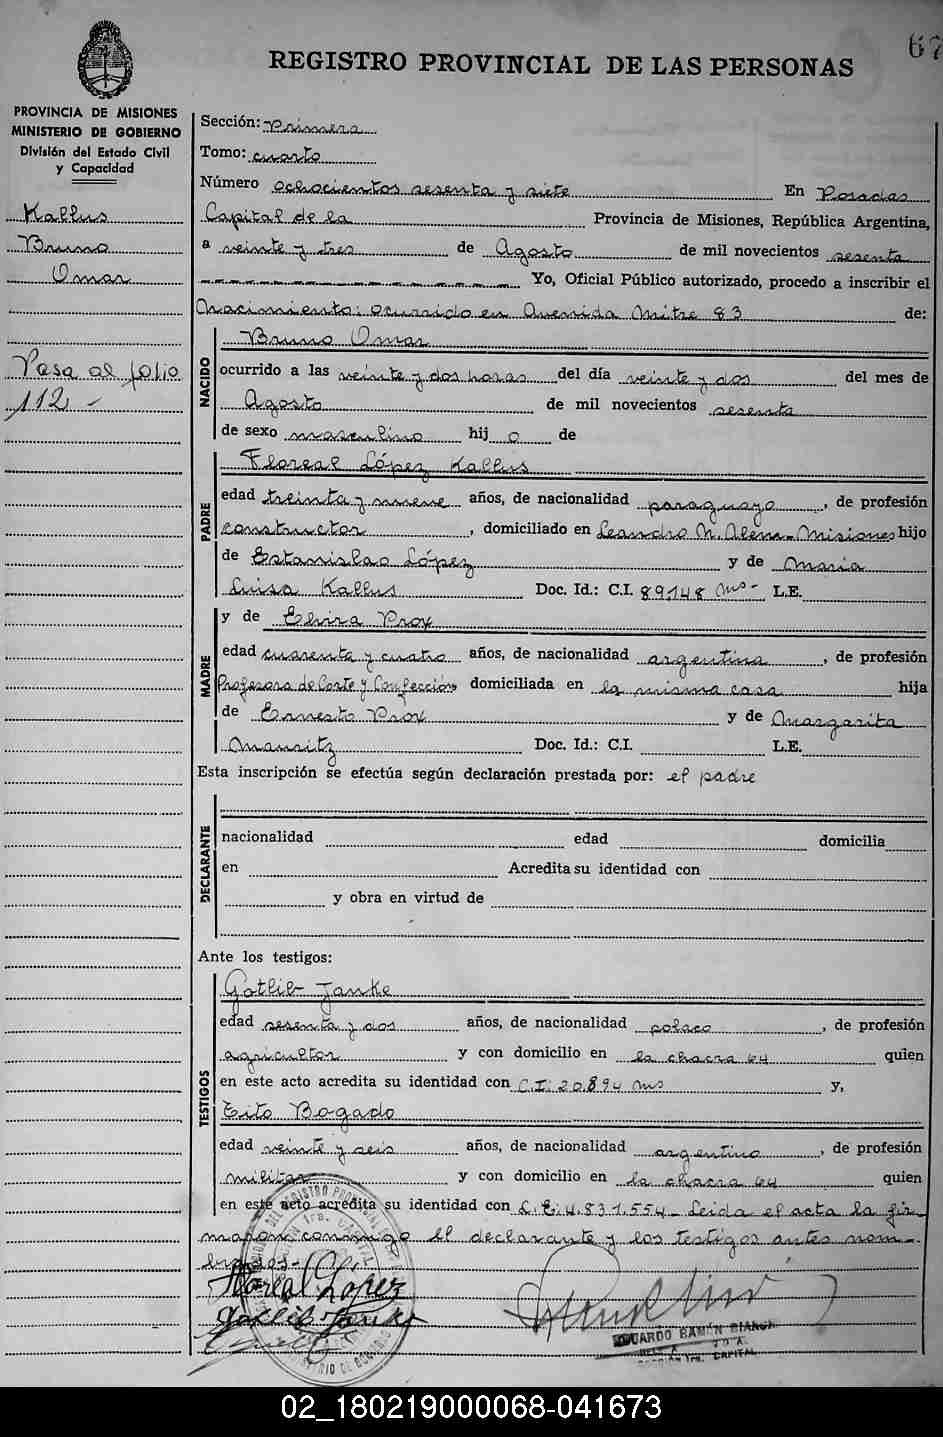 67
REGISTRO PROVINCIAL DE LAS PERSONAS
PROVINCIA DE MISIONES
MINISTERIO DE GOBIERNO
División del Estado Civil
y Capacidad
Kallus
Bruno
Omar
Pasa al folio
112.-
Sección: Primera
Tomo: cuarto
Número ochocientos sesenta y siete En Posadas
Capital de la Provincia de Misiones, República Argentina,
a veinte y tres de Agosto de mil novecientos sesenta
Yo, Oficial Público autorizado, procedo a inscribir el
Nacimiento: ocurrido en Avenida Mitre 83 de:
NACIDO
Bruno Omar
ocurrido a las veinte y dos horas del día veinte y dos del mes de
Agosto de mil novecientos sesenta
de sexo masculino hij o de
PADRE
Floreal López Kallus
edad treinta y nueve años, de nacionalidad paraguayo, de profesión
constructor, domiciliado en Leandro N. Alem - Misiones hijo
de Estanislao López y de María
Luisa Kallus Doc. Id.: C.I. 89148 Ms- L.E.
MADRE
y de Elvira Prox
edad cuarenta y cuatro años, de nacionalidad argentina, de profesión
Profesora de Corte y Confección domiciliada en la misma casa hija
de Ernesto Prox y de Margarita
Mauritz Doc. Id.: C.I. L.E.
Esta inscripción se efectúa según declaración prestada por: el padre
DECLARANTE
nacionalidad edad domicilia
en Acredita su identidad con
y obra en virtud de
Ante los testigos:
TESTIGOS
Gotlib Janke
edad sesenta y dos años, de nacionalidad polaco, de profesión
agricultor y con domicilio en la chacra 64 quien
en este acto acredita su identidad con C.I: 20.894 Ms y,
Tito Bogado
edad veinte y seis años, de nacionalidad argentino, de profesión
militar y con domicilio en la chacra 64 quien
en este acto acredita su identidad con L.E: 4.831.554 - Leida el acta la fir-
maron conmigo el declarante y los testigos antes nom-
brados.-
Floreal López
Gotlib Janke
CAPITAL
02_180219000068-041673